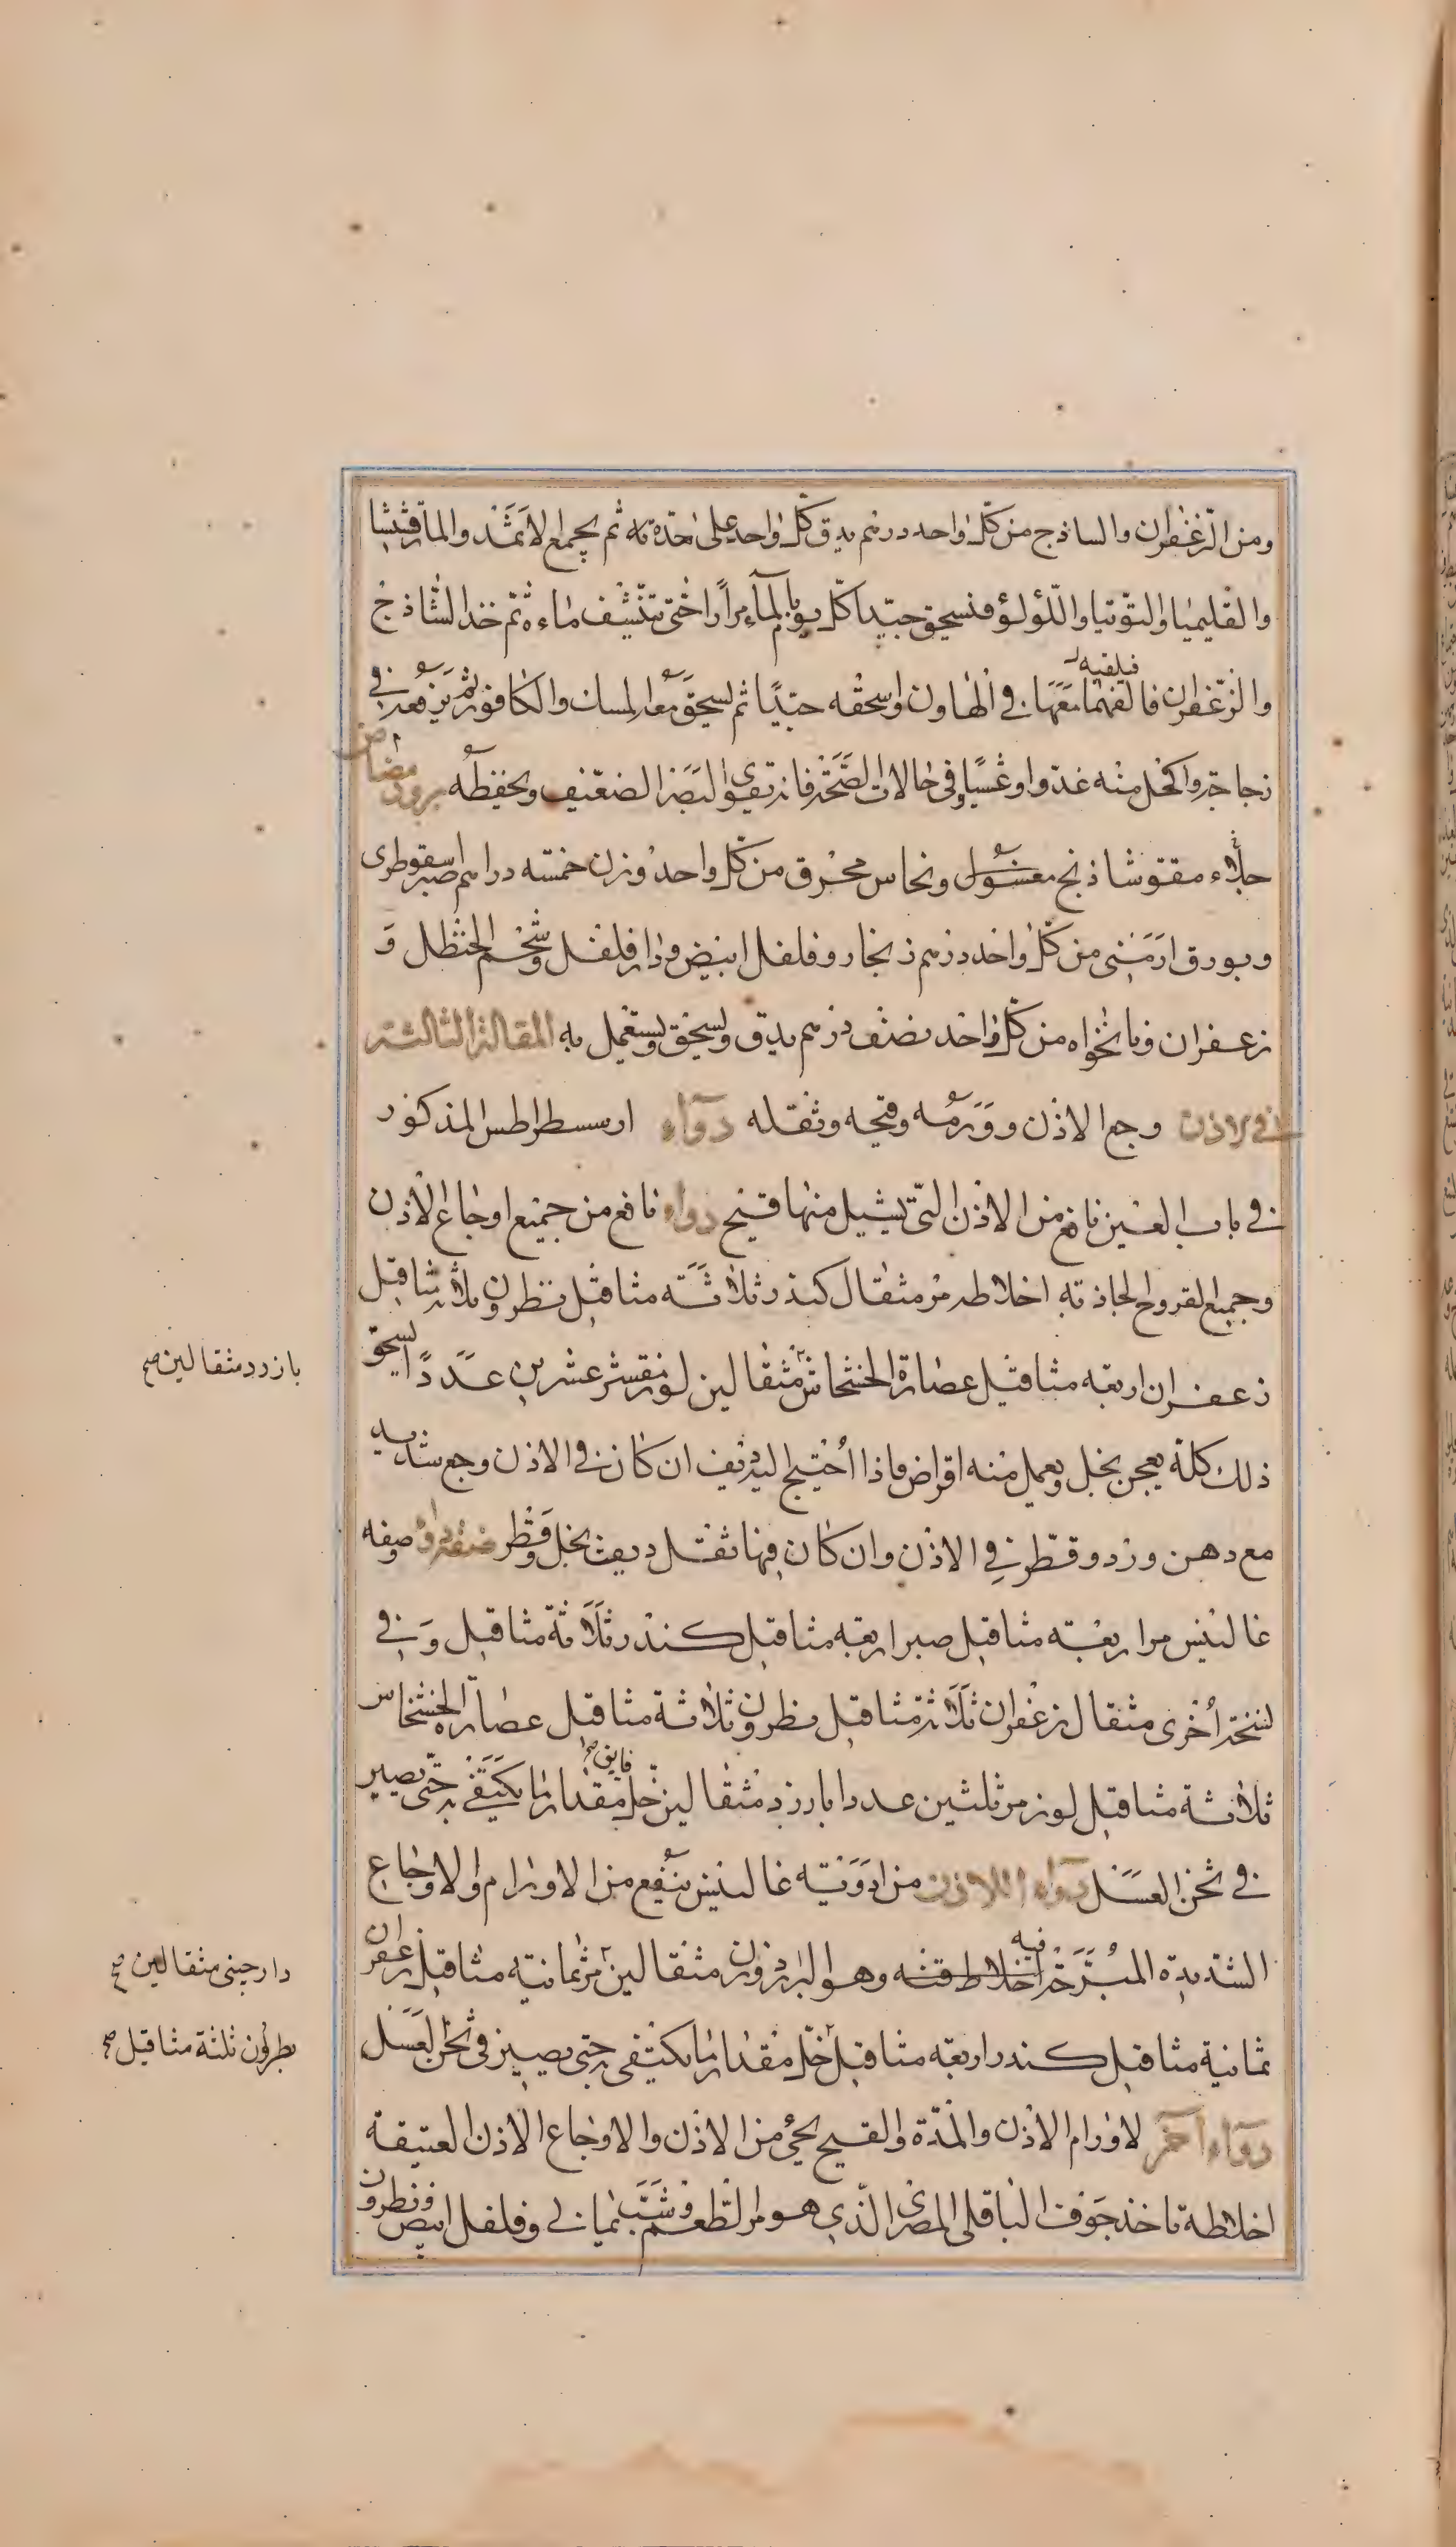 ومن الزعفران والساذج من كل واحد درهم يدق كل واحد على حدته ثم يجمع الاثمد والمارقشيثا
والقليميا والتوتيا واللؤلؤ فتسحق جيدا كل يوم بالماء مرارا حتى تنشف ماءه ثم خذ الشاذج
فيلقيه
والزعفران فالقهما معها في الهاون واسحقه جيدا ثم لسحق معه المسك والكافور ثم يرفعه في
زجاجة واكحل منه غدوا وعشيا وفي حالات الصحة فانه يقوي البصر الضعيف ويحفظه
جلاء مقو شاذنج مغسول ونحاس محرق من كل واحد وزن خمسه دراهم صبر اسقوطرى
وبورق ارمني من كل واحد درهم زنجار وفلفل ابيض ودار فلفل وشحم الحنظل و
زعفران ونانخواه من كل واحد نصف درهم يدق ولسحق ولستعمل به المقالة الثالثة
في الاذن وجع الاذن وورمه وقيحه وثقله دواء ارسسطراطس المذكور
في باب العين نافع من الاذن التي يسيل منها قيح دواء نافع من جميع اوجاع الاذن
وجميع القروح الحاذته اخلاطه مر مثقال كندر ثلاثة مثاقيل نظرون ثلاثة مثاقيل
زعفران اربعه مثاقيل عصارة الخشخاش مثقالين لوز مقشر عشرين عددا لسحق
بازرد مثقالين صح
ذلك كله يعجن بخل ويعمل منه اقراض فاذا احتيج اليه ديف ان كان في الاذن وجع شديد
مع دهن ورد وقطر في الاذن وان كان فيها ثقل ديف بخل وقطر صفة دواء وصفه
غالينس مر اربعه مثاقيل صبر اربعه مثاقيل كندر ثلاثة مثاقيل وفي
لسخة اخرى مثقال زعفران ثلاثة مثاقيل نظرون ثلاثة مثاقيل عصارة الخشخاس
ثلاثة مثاقيل لوز مر ثلثين عددا بارزد مثقالين خل مقدار ما يكتفى به حتى يصير
في ثخن العسل دواء للاذن من ادوية غالينس ينفع من الاورام والاوجاع
فيه
الشديدة المبرحة اخلاطه وهو البارزذ وزن مثقالين مر ثمانيه مثاقيل زعفران
دارجيني مثقالين صح
ثمانية مثاقيل كندر اربعه مثاقيل خل مقدار ما يكتفى به حتى يصير في ثخن العسل
بطرؤن ثلثة مثاقيل صح
دواء اخر لاورام الاذن والمدة والقيح يجئ من الاذن والاوجاع الاذن العتيقة
اخلاطه تاخذ جوف الباقلى المصري الذي هو مر الطعم وشب يماني وفلفل ابيض ونطرون